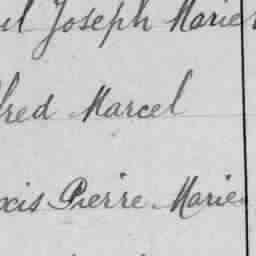 Joseph Marie
Marcel
Pierre Marie